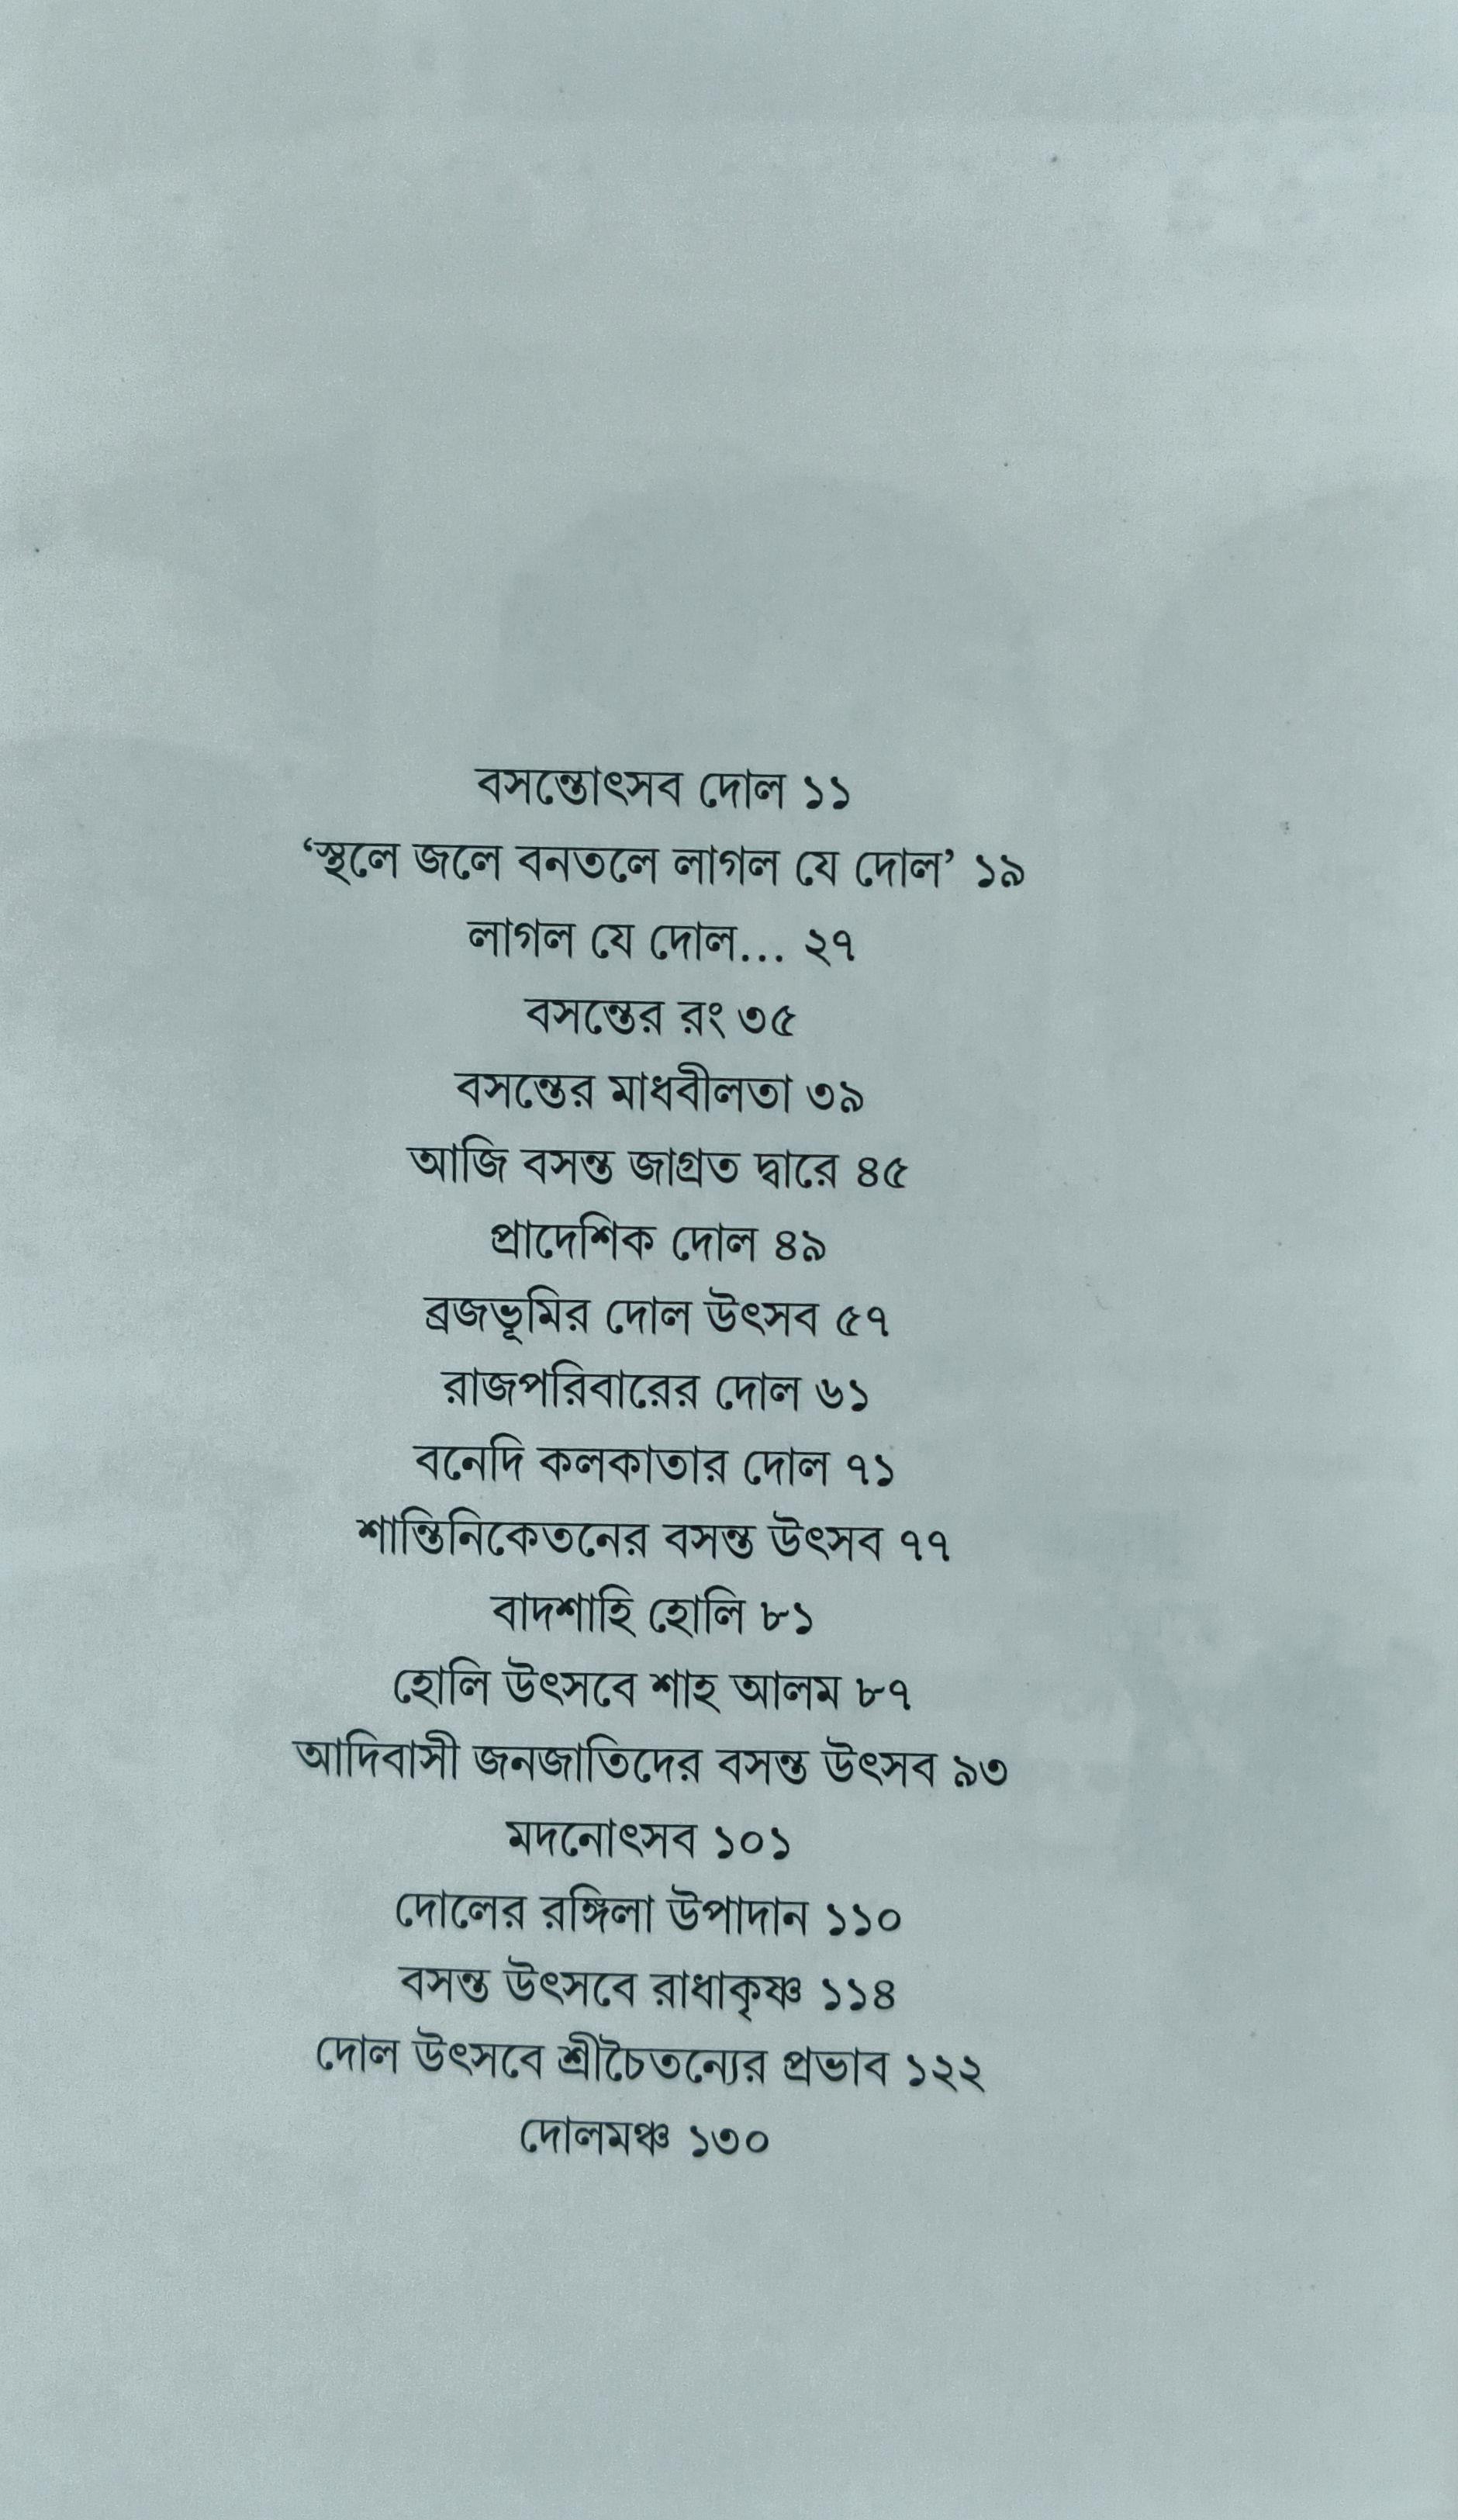 বসন্তোৎসব দোল ১১
‘স্থলে জলে বনতলে লাগল যে দোল’ ১৯
লাগল যে দোল... ২৭
বসন্তের রং ৩৫
বসন্তের মাধবীলতা ৩৯
আজি বসন্ত জাগ্রত দ্বারে ৪৫
প্রাদেশিক দোল ৪৯
ব্রজভূমির দোল উৎসব ৫৭
রাজপরিবারের দোল ৬১
বনেদি কলকাতার দোল ৭১
শান্তিনিকেতনের বসন্ত উৎসব ৭৭
বাদশাহি হোলি ৮১
হোলি উৎসবে শাহ আলম ৮৭
আদিবাসী জনজাতিদের বসন্ত উৎসব ৯৩
মদনোৎসব ১০১
দোলের রঙ্গিলা উপাদান ১১০
বসন্ত উৎসবে রাধাকৃষ্ণ ১১৪
দোল উৎসবে শ্রীচৈতন্যের প্রভাব ১২২
দোলমঞ্চ ১৩০